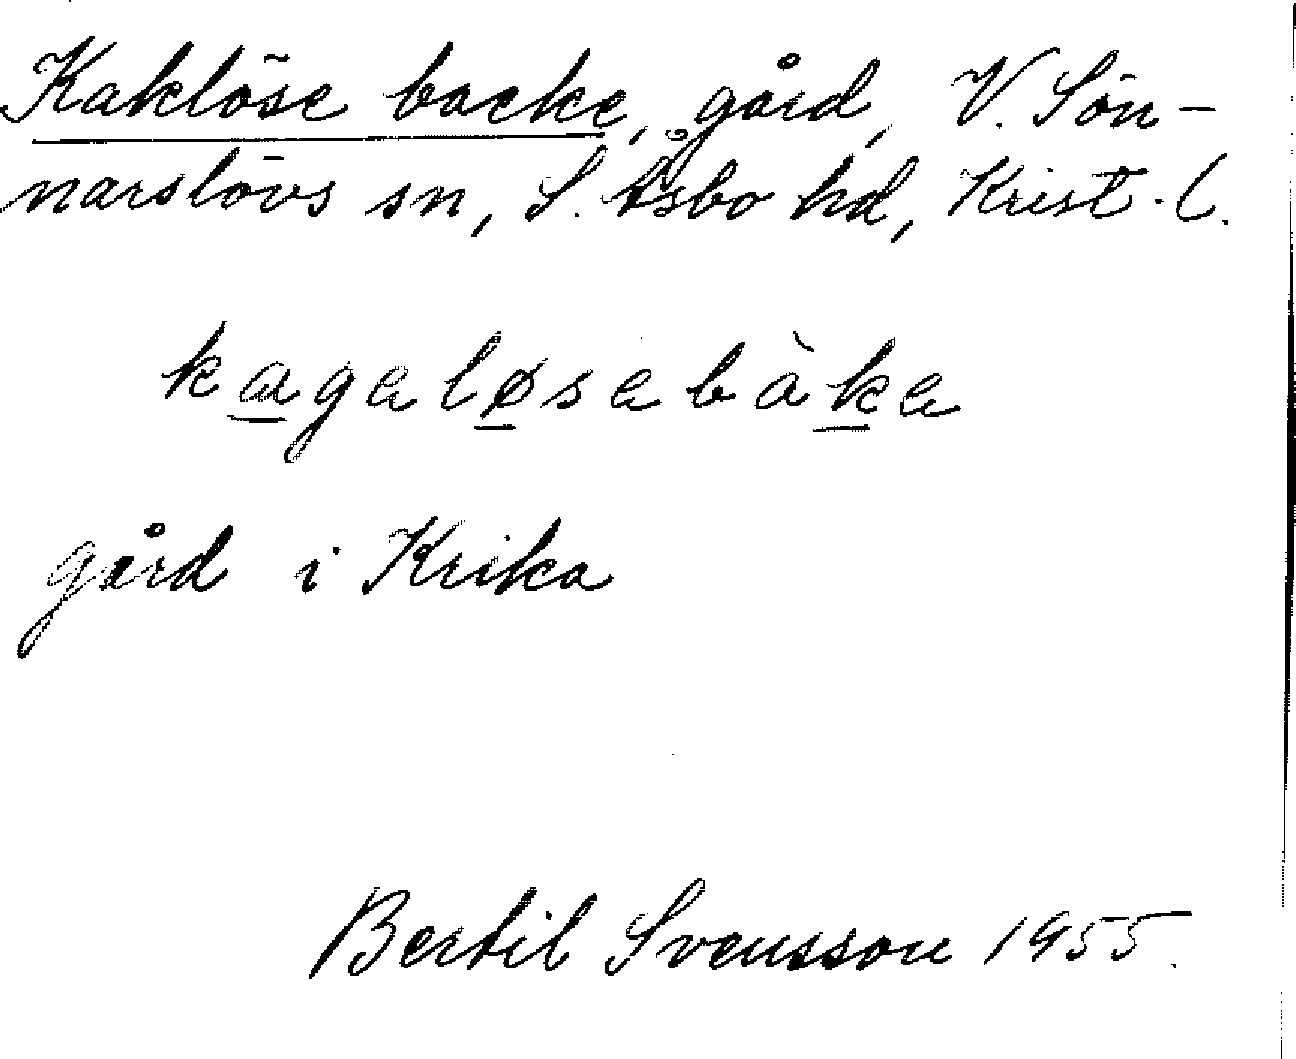 Kaklöse backe, gård, V. Sön-
narslövs sn, S. Åsbo hd, Krist. l.
kagaløsabàka
gård i Krika
Bertil Svensson 1955.